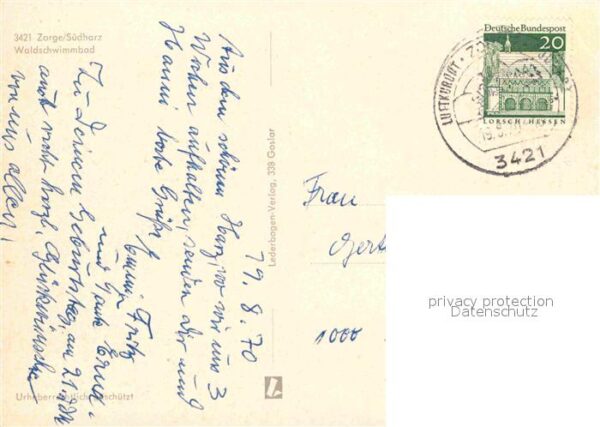 3421 Zorge/Südharz
Waldschwimmbad
19.8.70
Aus dem schönen Harz, wo wir uns 3
Wochen aufhalten, senden Dir und
Hanni beste Grüße
Fritz
und Tante Erna.
Zu Deinem Geburtstag am 21.8.
auch recht herzl. Glückwünsche
von uns allen!
Urheberrechtlich geschützt
Lederbogen-Verlag, 338 Goslar
Deutsche Bundespost
20
LORSCH/HESSEN
LUFTKURORT
3421
Frau
Gert
1000
privacy protection
Datenschutz